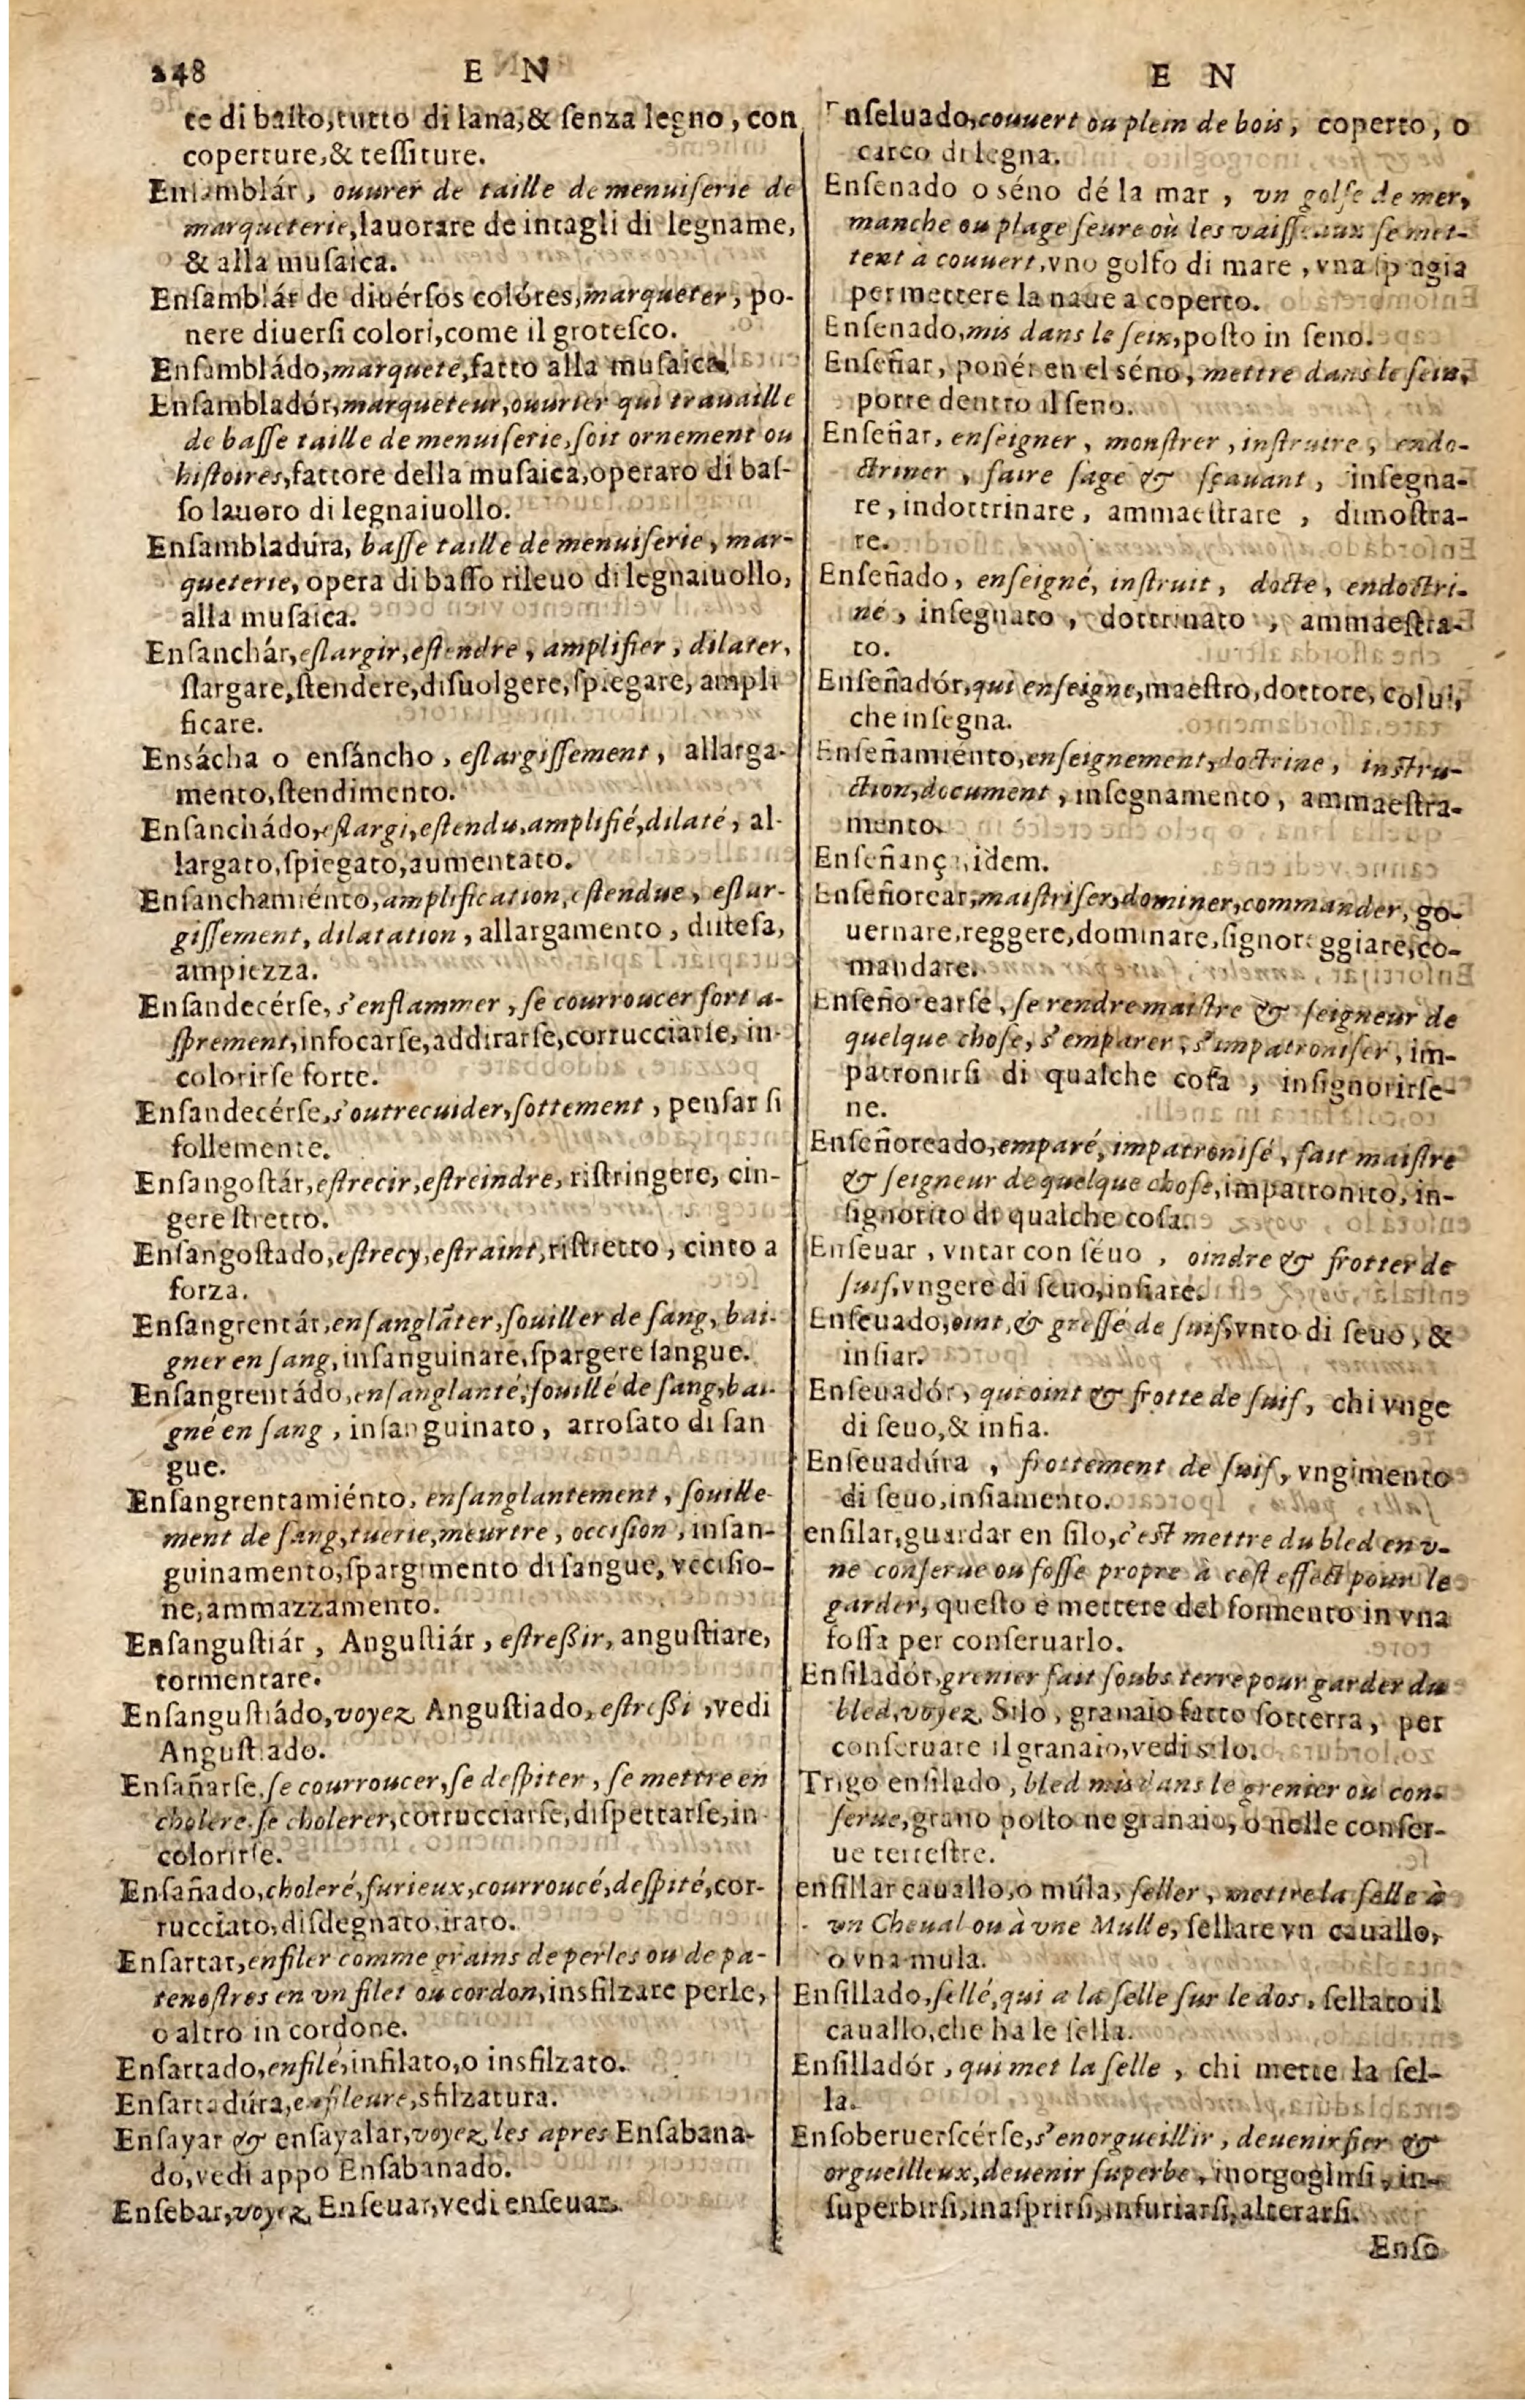 248 E N
te di basto, tutto di lana, & senza legno, con
coperture, & tessiture.
Ensamblár, ouurer de taille de menuiserie de
marqueterie, lauorare de intagli di legname,
& alla musaica.
Ensamblár de diuérsos colóres, marqueter, po-
nere diuersi colori, come il grotesco.
Ensambládo, marqueté, fatto alla musaica.
Ensambladór, marqueteur, ouurier qui trauaille
de basse taille de menuiserie, soit ornement ou
histoires, fattore della musaica, operaro di bas-
so lauoro di legnaiuollo.
Ensambladúra, basse taille de menuiserie, mar-
queterie, opera di basso rileuo di legnaiuollo,
alla musaica.
Ensanchár, eslargir, estendre, amplifier, dilater,
slargare, stendere, disuolgere, spiegare, ampli
ficare.
Ensácha o ensáncho, eslargissement, allarga-
mento, stendimento.
Ensanchádo, eslargi, estendu, amplifié, dilaté, al-
largato, spiegato, aumentato.
Ensanchamiénto, amplification, estendue, eslar-
gissement, dilatation, allargamento, diitesa,
ampiezza.
Ensandecérse, s'enflammer, se courroucer fort a-
sprement, infocarse, addirarse, corrucciarse, in-
colorirse forte.
Ensandecérse, s'outrecuider, sottement, pensar si
follemente.
Ensangostár, estrecir, estreindre, ristringere, cin-
gere stretto.
Ensangostado, estrecy, estraint, ristretto, cinto a
forza.
Ensangrentár, ensanglãter, souiller de sang, bai-
gner en sang, insanguinare, spargere sangue.
Ensangrentádo, ensanglanté, souillé de sang, bai-
gné en sang, insanguinato, arrosato di san
gue.
Ensangrentamiénto, ensanglantement, souille-
ment de sang, tuerie, meurtre, occision, insan-
guinamento, spargimento di sangue, vccisio-
ne, ammazzamento.
Ensangustiár, Angustiár, estreßir, angustiare,
tormentare.
Ensangustiádo, voyez Angustiado, estreßi, vedi
Angustiado.
Ensañarse, se courroucer, se despiter, se mettre en
cholere, se cholerer, corrucciarse, dispettarse, in-
colorirse.
Ensañado, choleré, furieux, courroucé, despité, cor-
rucciato, disdegnato, irato.
Ensartar, enfiler comme grains de perles ou de pa-
tenostres en vn filet ou cordon, insfilzare perle,
o altro in cordone.
Ensartado, enfilé, infilato, o insfilzato.
Ensartadúra, enfileure, sfilzatura.
Ensayar & ensayalar, voyez les apres Ensabana-
do, vedi appo Ensabanado.
Ensebar, voyez Enseuar, vedi enseuar.
E N
Enseluado, couuert ou plein de bois, coperto, o
carco di legna.
Ensenado o séno dé la mar, vn golfe de mer,
manche ou plage seure où les vaisseaux se met-
tent à couuert, vno golfo di mare, vna spagia
per mettere la naue a coperto.
Ensenado, mis dans le sein, posto in seno.
Enseñar, ponér en el séno, mettre dans le sein,
porre dentro il seno.
Enseñar, enseigner, monstrer, instruire, endo-
ctriner, faire sage & sçauant, insegna-
re, indottrinare, ammaestrare, dimostra-
re.
Enseñado, enseigné, instruit, docte, endoctri-
né, insegnato, dottrinato, ammaestra-
to.
Enseñadór, qui enseigne, maestro, dottore, colui,
che insegna.
Enseñamiénto, enseignement, doctrine, instru-
ction, document, insegnamento, ammaestra-
mento.
Enseñança, idem.
Enseñorear, maistriser, dominer, commander, go-
uernare, reggere, dominare, signoreggiare, co-
mandare.
Enseñorearsé, se rendre maistre & seigneur de
quelque chose, s'emparer, s'impatroniser, im-
patronirsi di qualche cosa, insignorirse-
ne.
Enseñoreado, emparé, impatronisé, fait maistre
& seigneur de quelque chose, impatronito, in-
signorito di qualche cosa.
Enseuar, vntar con séuo, oindre & frotter de
suif, vngere di seuo, insiare.
Enseuado, oint, & gressé de suif, vnto di seuo, &
insiar.
Enseuadór, qui oint & frotte de suif, chi vnge
di seuo, & insia.
Enseuadúra, frottement de suif, vngimento
di seuo, insiamento.
ensilar, guardar en silo, c'est mettre du bled en v-
ne conserue ou fosse propre à cest effect pour le
garder, questo è mettere del formento in vna
fossa per conseruarlo.
Ensiladór, grenier fait soubs terre pour garder du
bled, voyez Silo, granaio fatto sotterra, per
conseruare il granaio, vedi silo.
Trigo ensilado, bled mis dans le grenier ou con-
serue, grano posto ne granaio, o nelle conser-
ue terrestre.
ensillar cauallo, o múla, seller, mettre la selle à
vn Cheual ou à vne Mulle, sellare vn cauallo,
o vna mula.
Ensillado, sellé, qui a la selle sur le dos, sellato il
cauallo, che ha le sella.
Ensilladór, qui met la selle, chi mette la sel-
la.
Ensoberuerscérse, s'enorgueillir, deuenir fier &
orgueilleux, deuenir superbe, inorgoglirsi, in-
superbirsi, inasprirsi, infuriarsi, alterarsi.
Enso